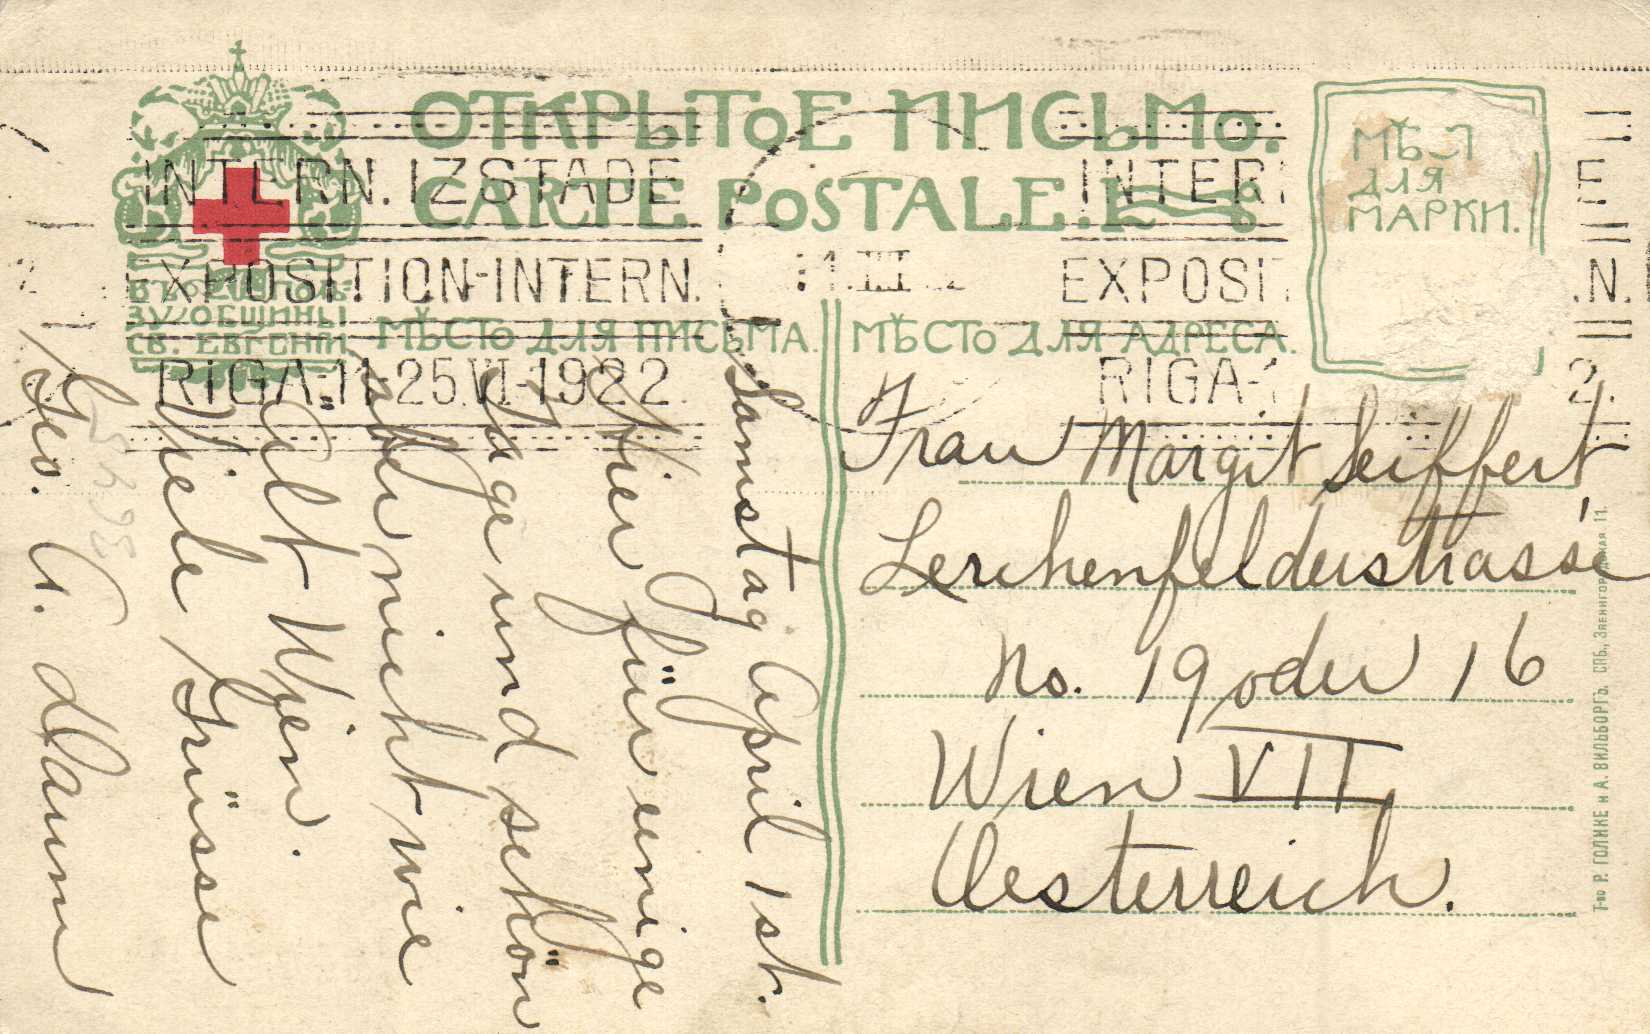 ОТКРЫТОЕ ПИСЬМО.
CARTE POSTALE.
МѢСТО
ДЛЯ
МАРКИ.
INTERN. IZSTADE
EXPOSITION-INTERN.
RIGA-11-25.VI-1922.
INTER E
EXPOSI .N.
RIGA-1 2.
ВЪ ПОЛЬ-
ЗУ ОБЩИНЫ
СВ. ЕВГЕНІИ
МѢСТО ДЛЯ ПИСЬМА.
МѢСТО ДЛЯ АДРЕСА.
Samstag April 1st.
Hier für einige
Tage und schön
aber nicht wie
Alt Wien.
Viele Grüsse
Geo. A.
Frau Margit Seiffert
Lerchenfelderstrasse
No. 19 oder 16
Wien VII
Oesterreich.
Т-во Р. ГОЛИКЕ и А. ВИЛЬБОРГЪ. СПБ., ЗВЕНИГОРОДСКАЯ 11